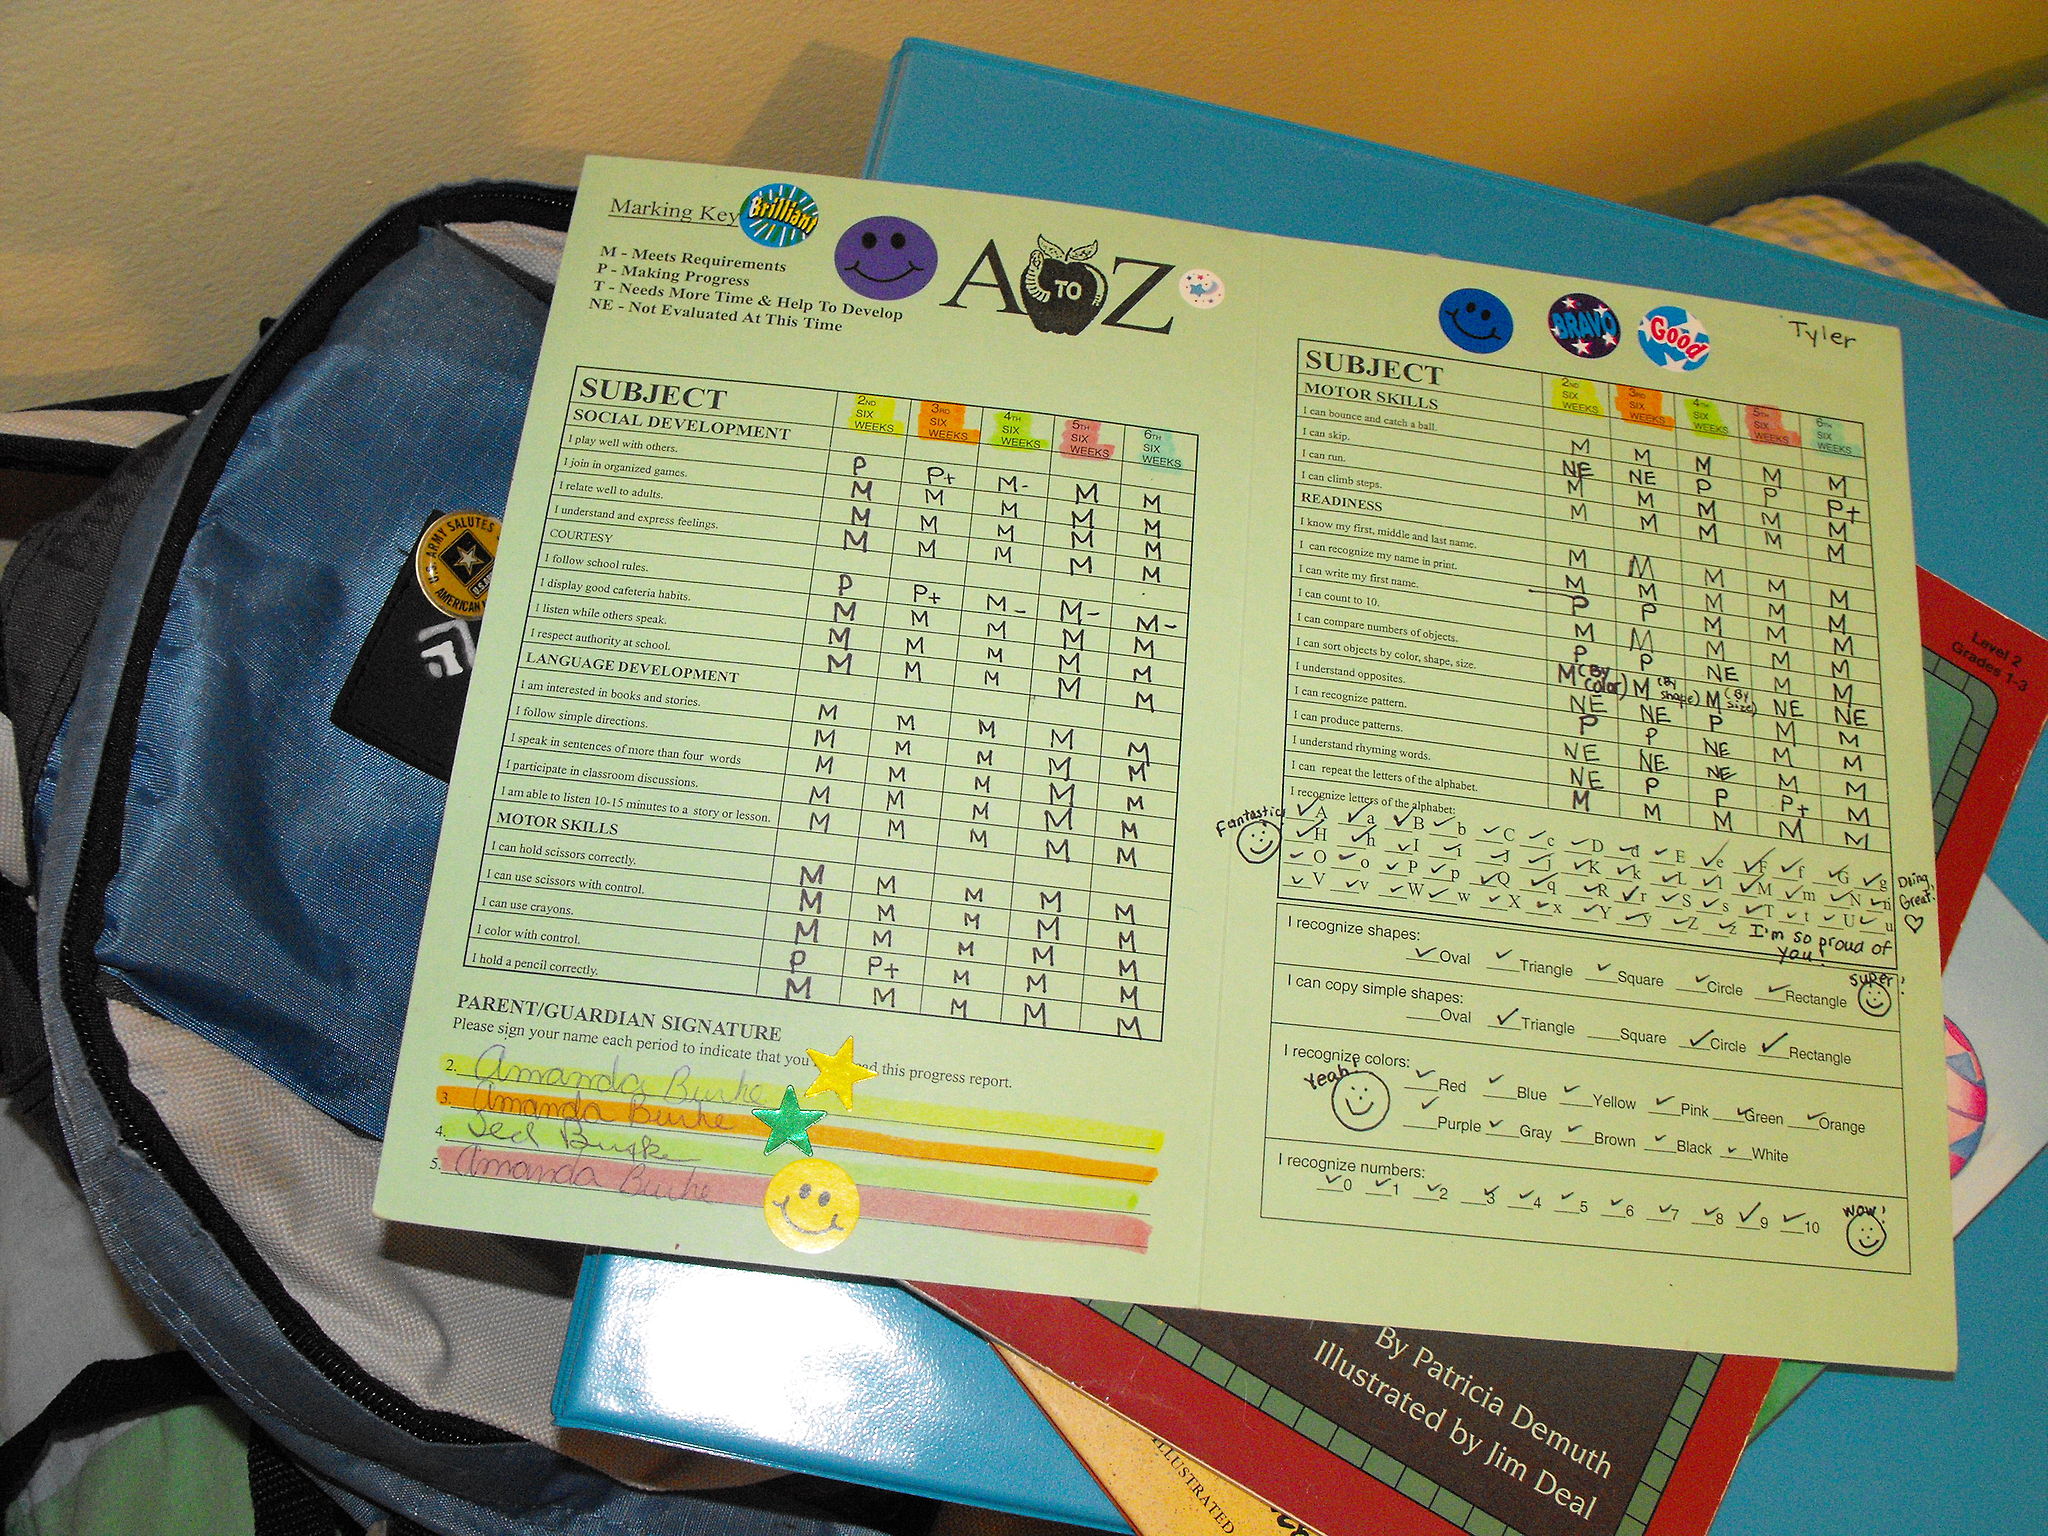 Marking Key
Brilliant
M - Meets Requirements
P - Making Progress
T - Needs More Time & Help To Develop
NE - Not Evaluated At This Time
A TO Z
SUBJECT 2ND SIX WEEKS 3RD SIX WEEKS 4TH SIX WEEKS 5TH SIX WEEKS 6TH SIX WEEKS
SOCIAL DEVELOPMENT
I play well with others. P P+ M- M M
I join in organized games. M M M M M
I relate well to adults. M M M M M
I understand and express feelings. M M M M M
COURTESY
I follow school rules. P P+ M- M- M-
I display good cafeteria habits. M M M M M
I listen while others speak. M M M M M
I respect authority at school. M M M M M
LANGUAGE DEVELOPMENT
I am interested in books and stories. M M M M M
I follow simple directions. M M M M M
I speak in sentences of more than four words M M M M M
I participate in classroom discussions. M M M M M
I am able to listen 10-15 minutes to a story or lesson. M M M M M
MOTOR SKILLS
I can hold scissors correctly. M M M M M
I can use scissors with control. M M M M M
I can use crayons. M M M M M
I color with control. P P+ M M M
I hold a pencil correctly. M M M M M
PARENT/GUARDIAN SIGNATURE
Please sign your name each period to indicate that you this progress report.
2. Amanda Burke
3. Amanda Burke
4. Jed Burke
5. Amanda Burke
BRAVO
Good
Tyler
SUBJECT 2ND SIX WEEKS 3RD SIX WEEKS 4TH SIX WEEKS 5TH SIX WEEKS 6TH SIX WEEKS
MOTOR SKILLS
I can bounce and catch a ball. M M M M M
I can skip. NE NE P P P+
I can run. M M M M M
I can climb steps. M M M M M
READINESS
I know my first, middle and last name. M M M M M
I can recognize my name in print. M M M M M
I can write my first name. P P M M M
I can count to 10. M M M M M
I can compare numbers of objects. P P NE M M
I can sort objects by color, shape, size. M (By color) M (By shape) M (By size) NE NE
I understand opposites. NE NE P M M
I can recognize pattern. P P NE M M
I can produce patterns. NE NE NE M M
I understand rhyming words. NE P P P+ M
I can repeat the letters of the alphabet. M M M M M
I recognize letters of the alphabet:
Fantastic!
A a B b C c D d E e F f G g
H h I i J j K k L l M m N n
O o P p Q q R r S s T t U u
V v W w X x Y y Z z
Doing Great!
I'm so proud of you!
I recognize shapes:
Oval Triangle Square Circle Rectangle
super!
I can copy simple shapes:
Oval Triangle Square Circle Rectangle
I recognize colors:
Yeah!
Red Blue Yellow Pink Green Orange
Purple Gray Brown Black White
I recognize numbers:
0 1 2 3 4 5 6 7 8 9 10
wow!
U.S. ARMY SALUTES
AMERICAN
Level 2
Grades 1-3
By Patricia Demuth
Illustrated by Jim Deal
ILLUSTRATED